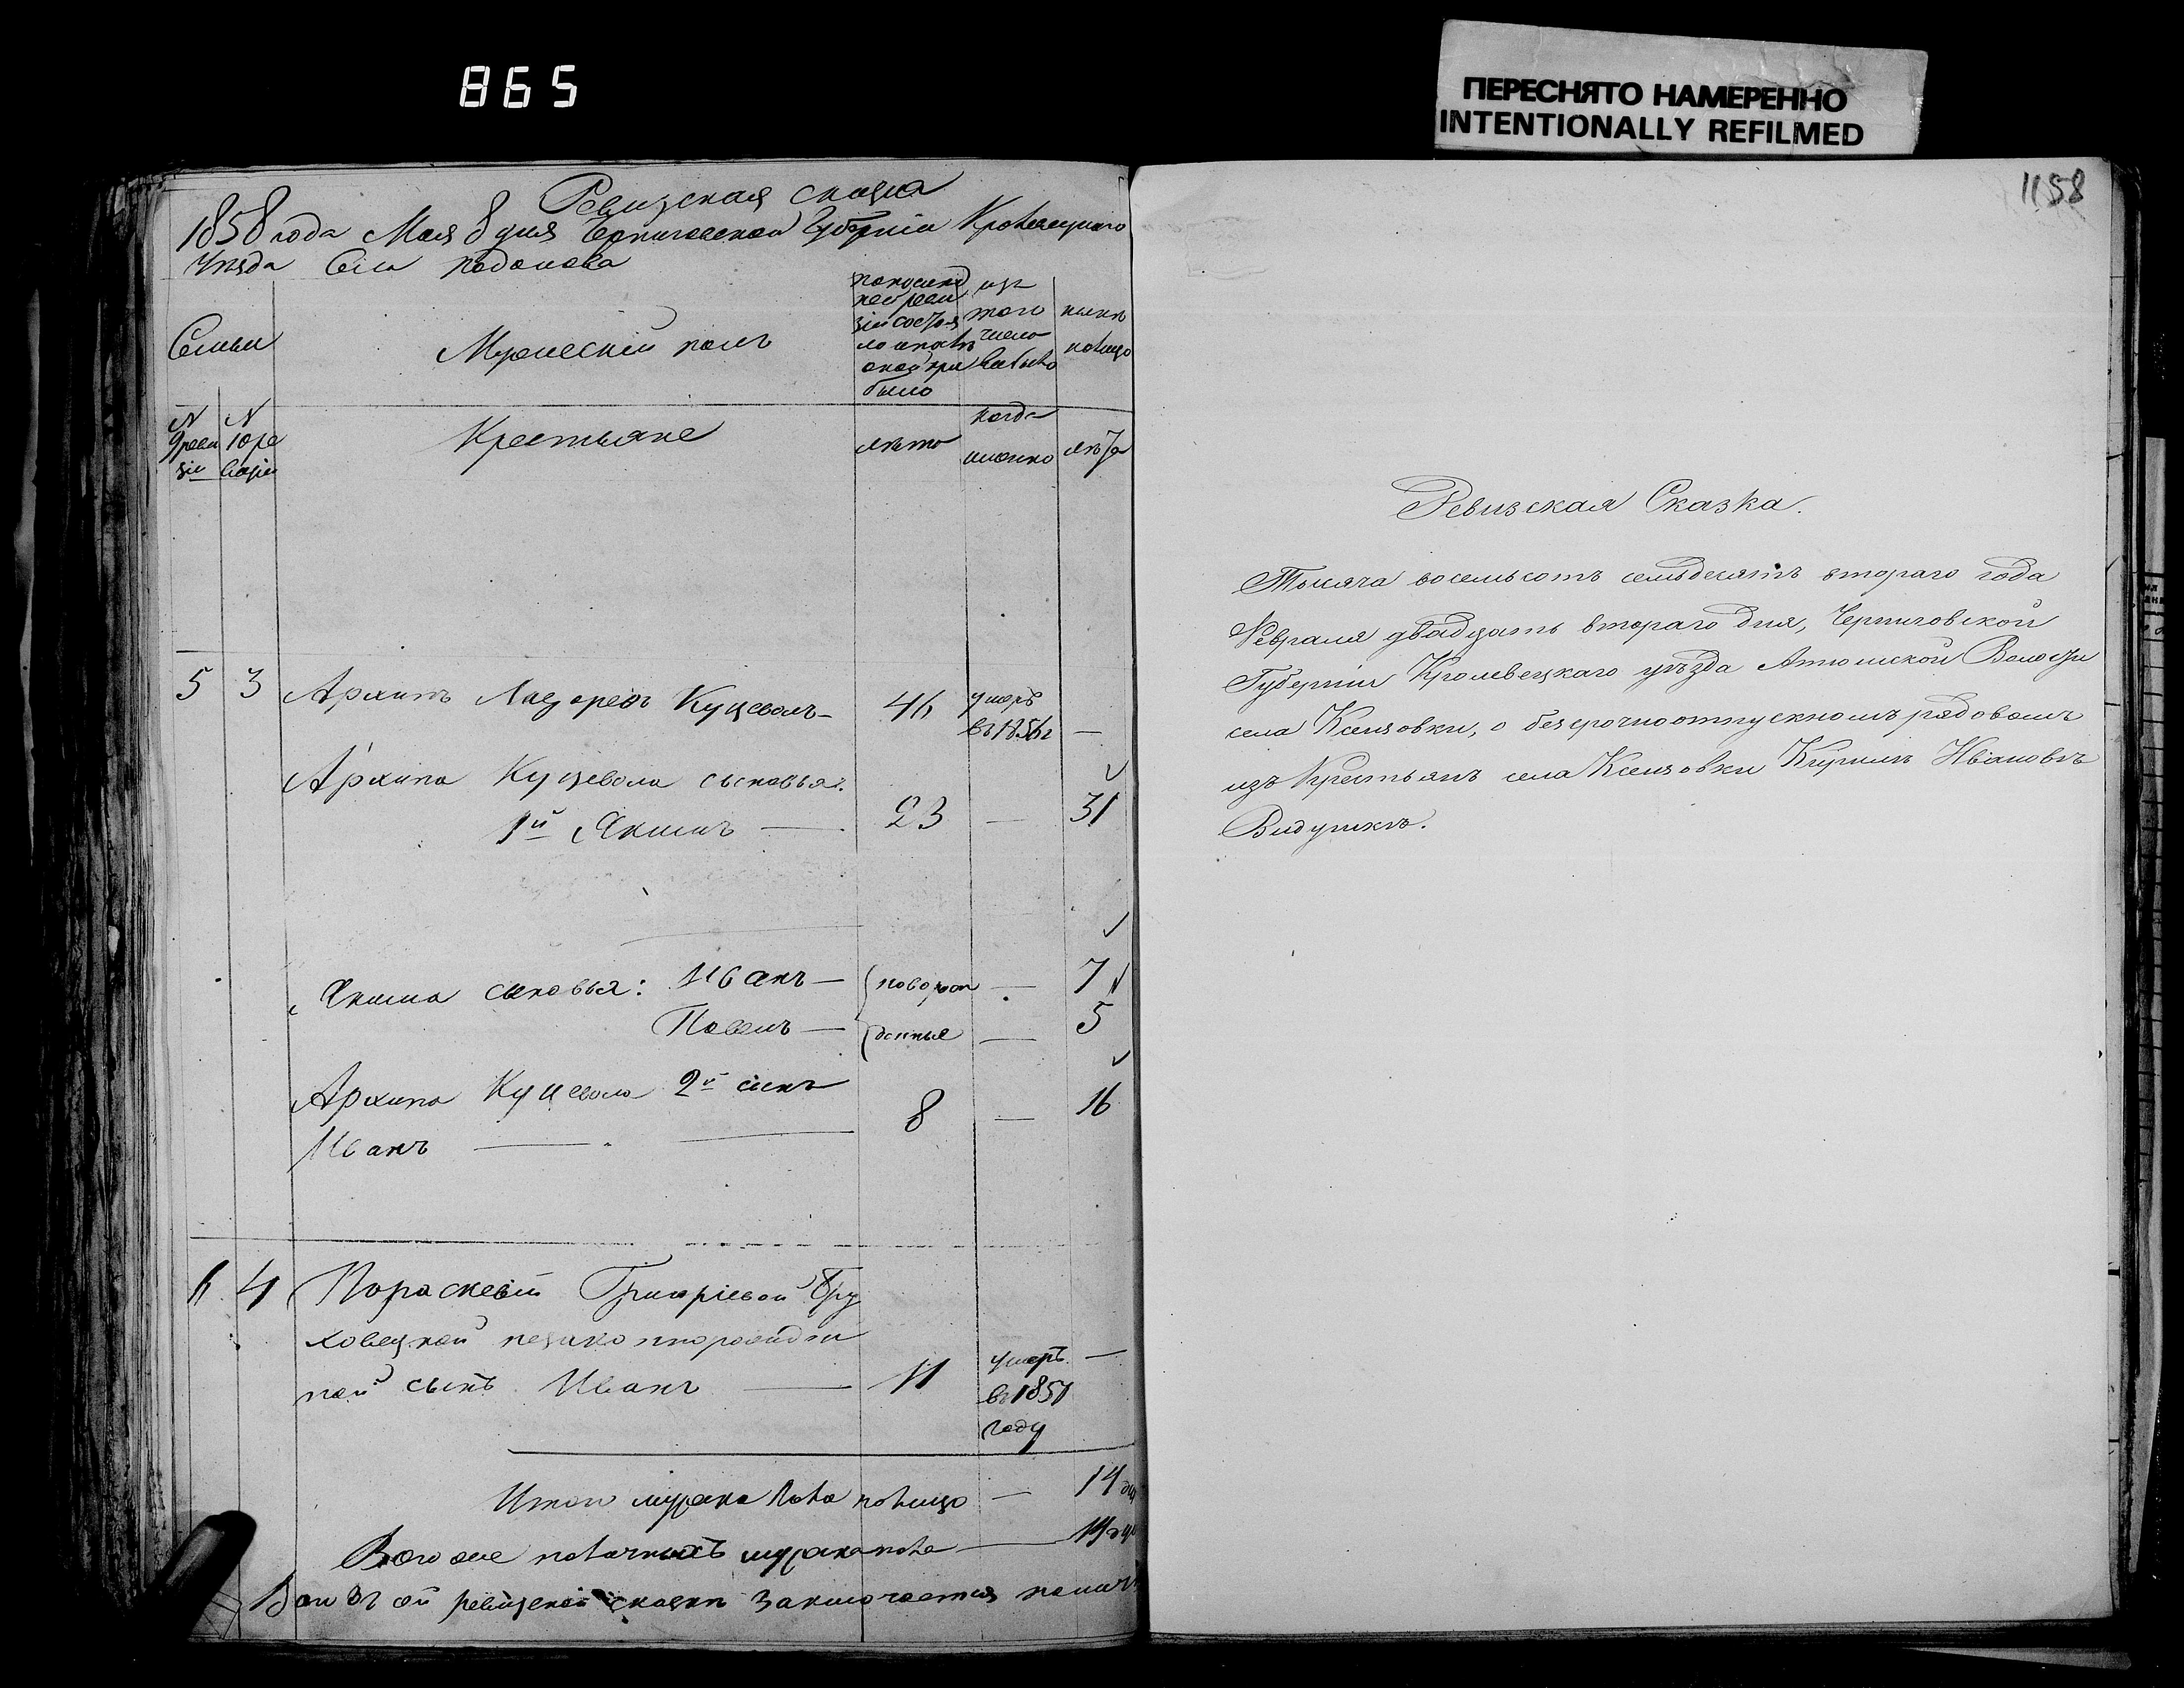 865
ПЕРЕСНЯТО НАМЕРЕННО
INTENTIONALLY REFILMED
Ревизская сказка
1858 года Мая 8 дня Черниговской Губерніи Кролевецкаго
Уѣзда Села
Семьи
Мужескій полъ
по послѣд
ней реви
зіи состоя
ло и послѣ
оной при
было
изъ
того
число
выбыло
нынѣ
налицо
N
9 реви
зіи
N
10 ре
визіи
Крестьяне
лѣта
когда
именно
лѣта
5 3 Архипъ Лазоревъ Куцеволъ 46 умеръ
въ 1856 г —
Архипа Куцевола сыновья:
1й Якимъ — 23 — 31
Якима сыновья: Иванъ — новорож — 7
Павелъ — денные — 5
Архипа Куцевола 2й сынъ
Иванъ — 8 — 16
6 4 Пораскевіи Григоріевой Бру
ховецкой незаконнорожден
ной сынъ Иванъ — 11 умеръ —
въ 1851
году
Итого мужеска пола налицо — 14
Всего же наличныхъ мужеска пола — 14
Что въ сей ревизской сказкѣ заключается
1158
Ревизская Сказка.
Тысяча восемьсотъ семьдесятъ втораго года
Февраля двадцать втораго дня, Черниговской
Губерніи Кролевецкаго уѣзда Атюшской Волости
села Ксензовки, о безсрочноотпускномъ рядовомъ
изъ Крестьянъ села Ксензовки Кирилъ Ивановъ